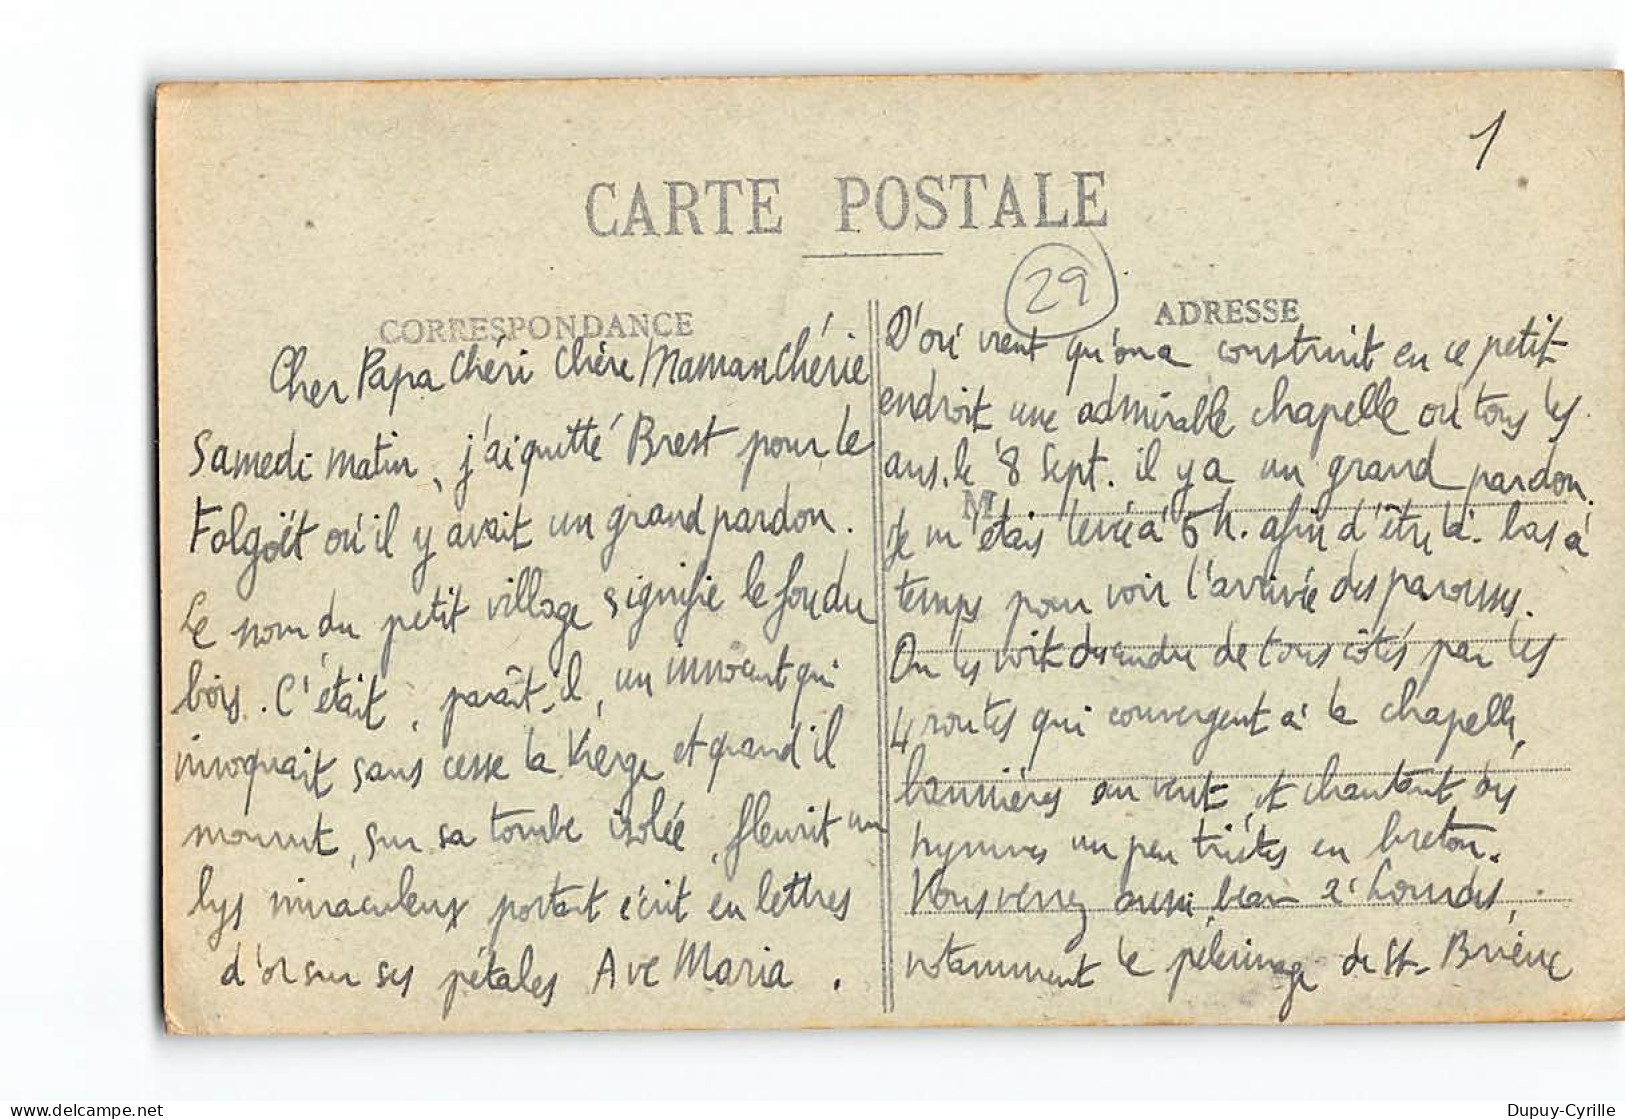 1
CARTE POSTALE
29
CORRESPONDANCE
Cher Papa Chéri Chère Maman Chérie
Samedi matin, j'ai quitté Brest pour le
Folgoët où il y avait un grand pardon.
Le nom du petit village signifie le fou du
bois. C'était, paraît-il, un innocent qui
invoquait sans cesse la Vierge et quand il
mourut, sur sa tombe isolée, fleurit un
lys miraculeux portant écrit en lettres
d'or sur ses pétales Ave Maria.
ADRESSE
M
D'où vient qu'on a construit en ce petit
endroit une admirable chapelle où tous les
ans, le 8 Sept. il y a un grand pardon.
Je m'étais levée à 5 h. afin d'être là-bas à
temps pour voir l'arrivée des paroisses.
On les voit descendre de tous côtés par les
4 routes qui convergent à la chapelle,
bannières au vent, et chantant des
hymnes un peu tristes en breton.
Vous verrez aussi, bien à Lourdes,
notamment le pélerinage de St-Brieuc
Dupuy-Cyrille